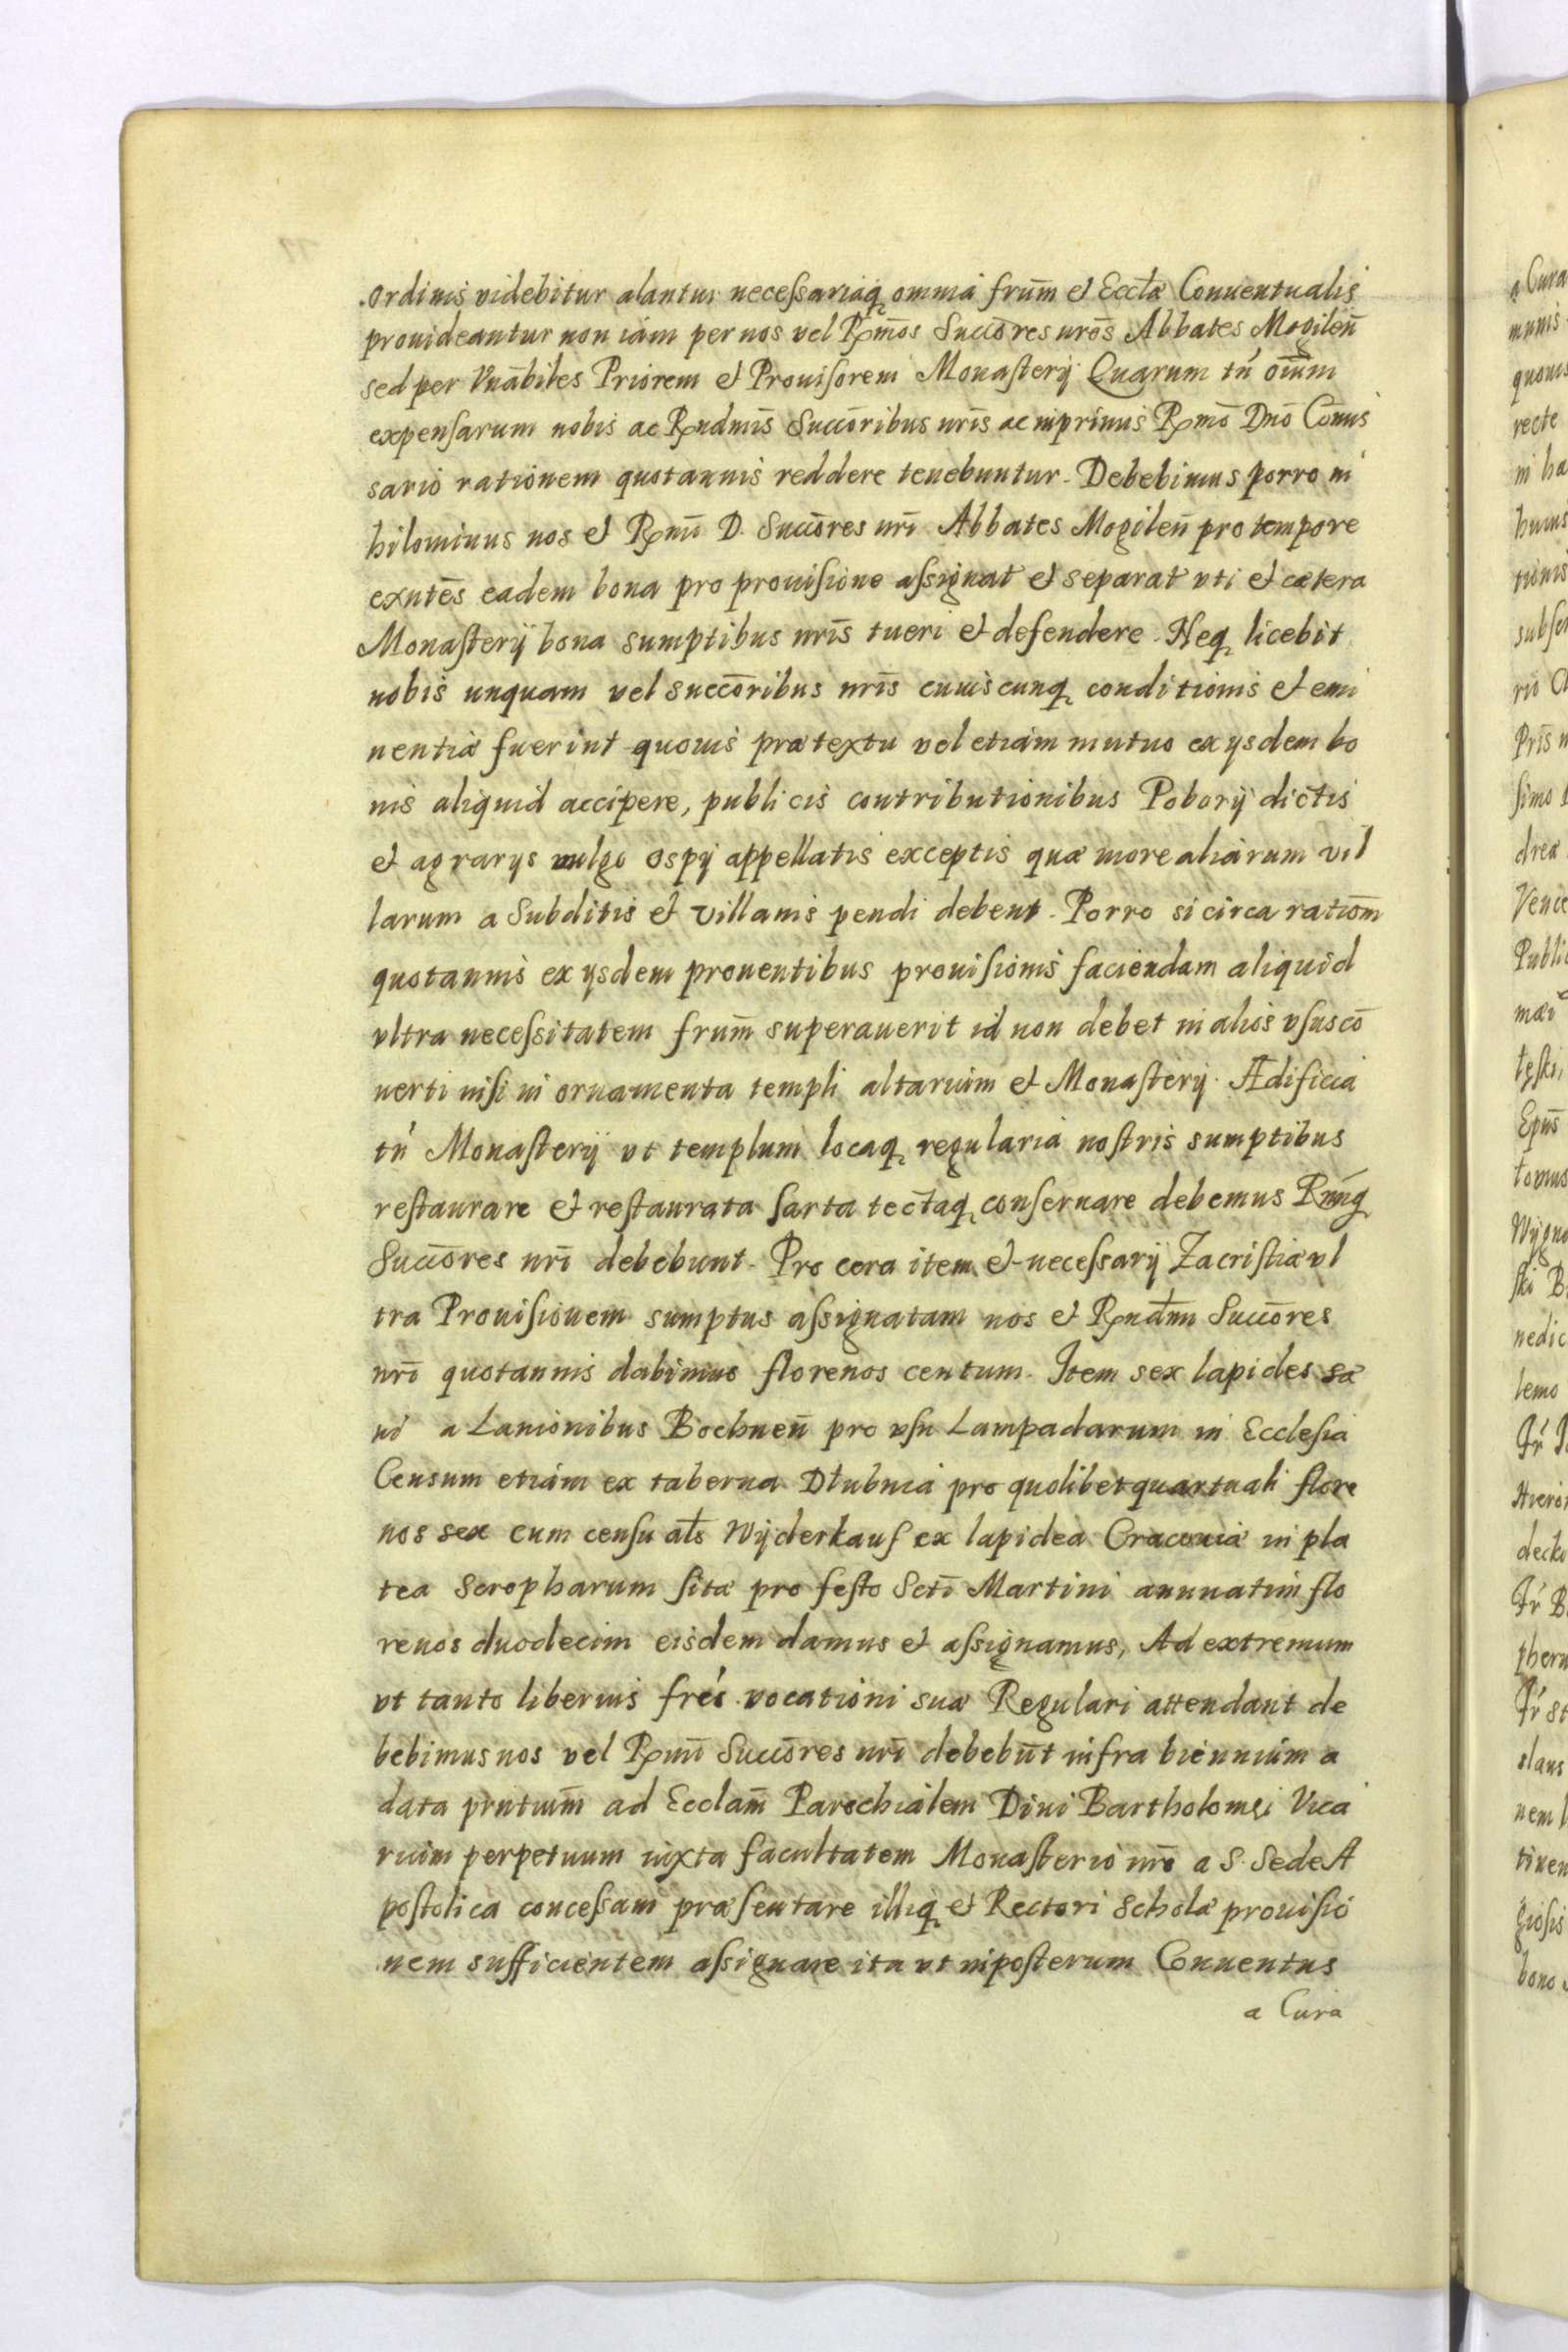 ordinis videbitur alantur necessariaq omnia frūm et Eccłæ Conuentualis
prouideantur non iam per nos vel Rmōs Succōres nrōs Abbates Mogileñ
sed per Vnābiles Priorem et Prouisorem Monasterij Quarum tń oīum
expensarum nobis ac Rndmīs Succōribus nrīs ac inprimis Rmō Dnō Cōmis
sario rationem quotannis reddere tenebuntur. Debebimus porro ni
hilominus nos et Rmī D. Succōres nrī Abbates Mogileñ pro tempore
exntēs eadem bona pro prouisione assignat et separat vti et cætera
Monasterij bona sumptibus nrīs tueri et defendere. Neq licebit
nobis unquam vel succōribus nrīs cuiuscunq conditionis et emi
nentiæ fuerint quouis prætextu vel etiam mutuo ex ijsdem bo
nis aliquid accipere, publicis contributionibus Poborij dictis
et agrarijs vulgo ospij appellatis exceptis quæ more aliarum vil
larum a Subditis et villanis pendi debent. Porro si circa ratiōm
quotannis ex ijsdem prouentibus prouisionis faciendam aliquid
vltra necessitatem frūm superauerit id non debet in alios vsus cō
uerti nisi in ornamenta templi altarium et Monasterij. Ædificia
tń Monasterij vt templum locaq regularia nostris sumptibus
restaurare et restaurata sarta tectaq conseruare debemus Rmīq
Succōres nrī debebunt. Pro cera item et necessarij Zacristiæ vl
tra Prouisionem sumptus assignatam nos et Rndmi Succōres
nrī quotannis dabimus florenos centum. Item sex lapides sæ
ui a Lanionibus Bochneñ pro vsu Lampadarum in Ecclesia
Censum etiam ex taberna Dłubnia pro quolibet quartuali flore
nos sex cum censu ałs Wyderkauf ex lapidea Cracouiæ in pla
tea scropharum sitæ pro festo Sctī Martini annuatim flo
renos duodecim eisdem damus et assignamus, Ad extremum
vt tanto liberius freś vocationi suæ Regulari attendant de
bebimus nos vel Rmī Succōres nrī debebūt infra biennium a
data prntiūm ad Ecclām Parochialem Diui Bartholomęi Vica
rium perpetuum iuxta facultatem Monasterio nrō a S. Sede A
postolica concessam præsentare illiq et Rectori Scholæ prouisio
nem sufficientem assignare ita vt inposterum Conuentus
a Cura